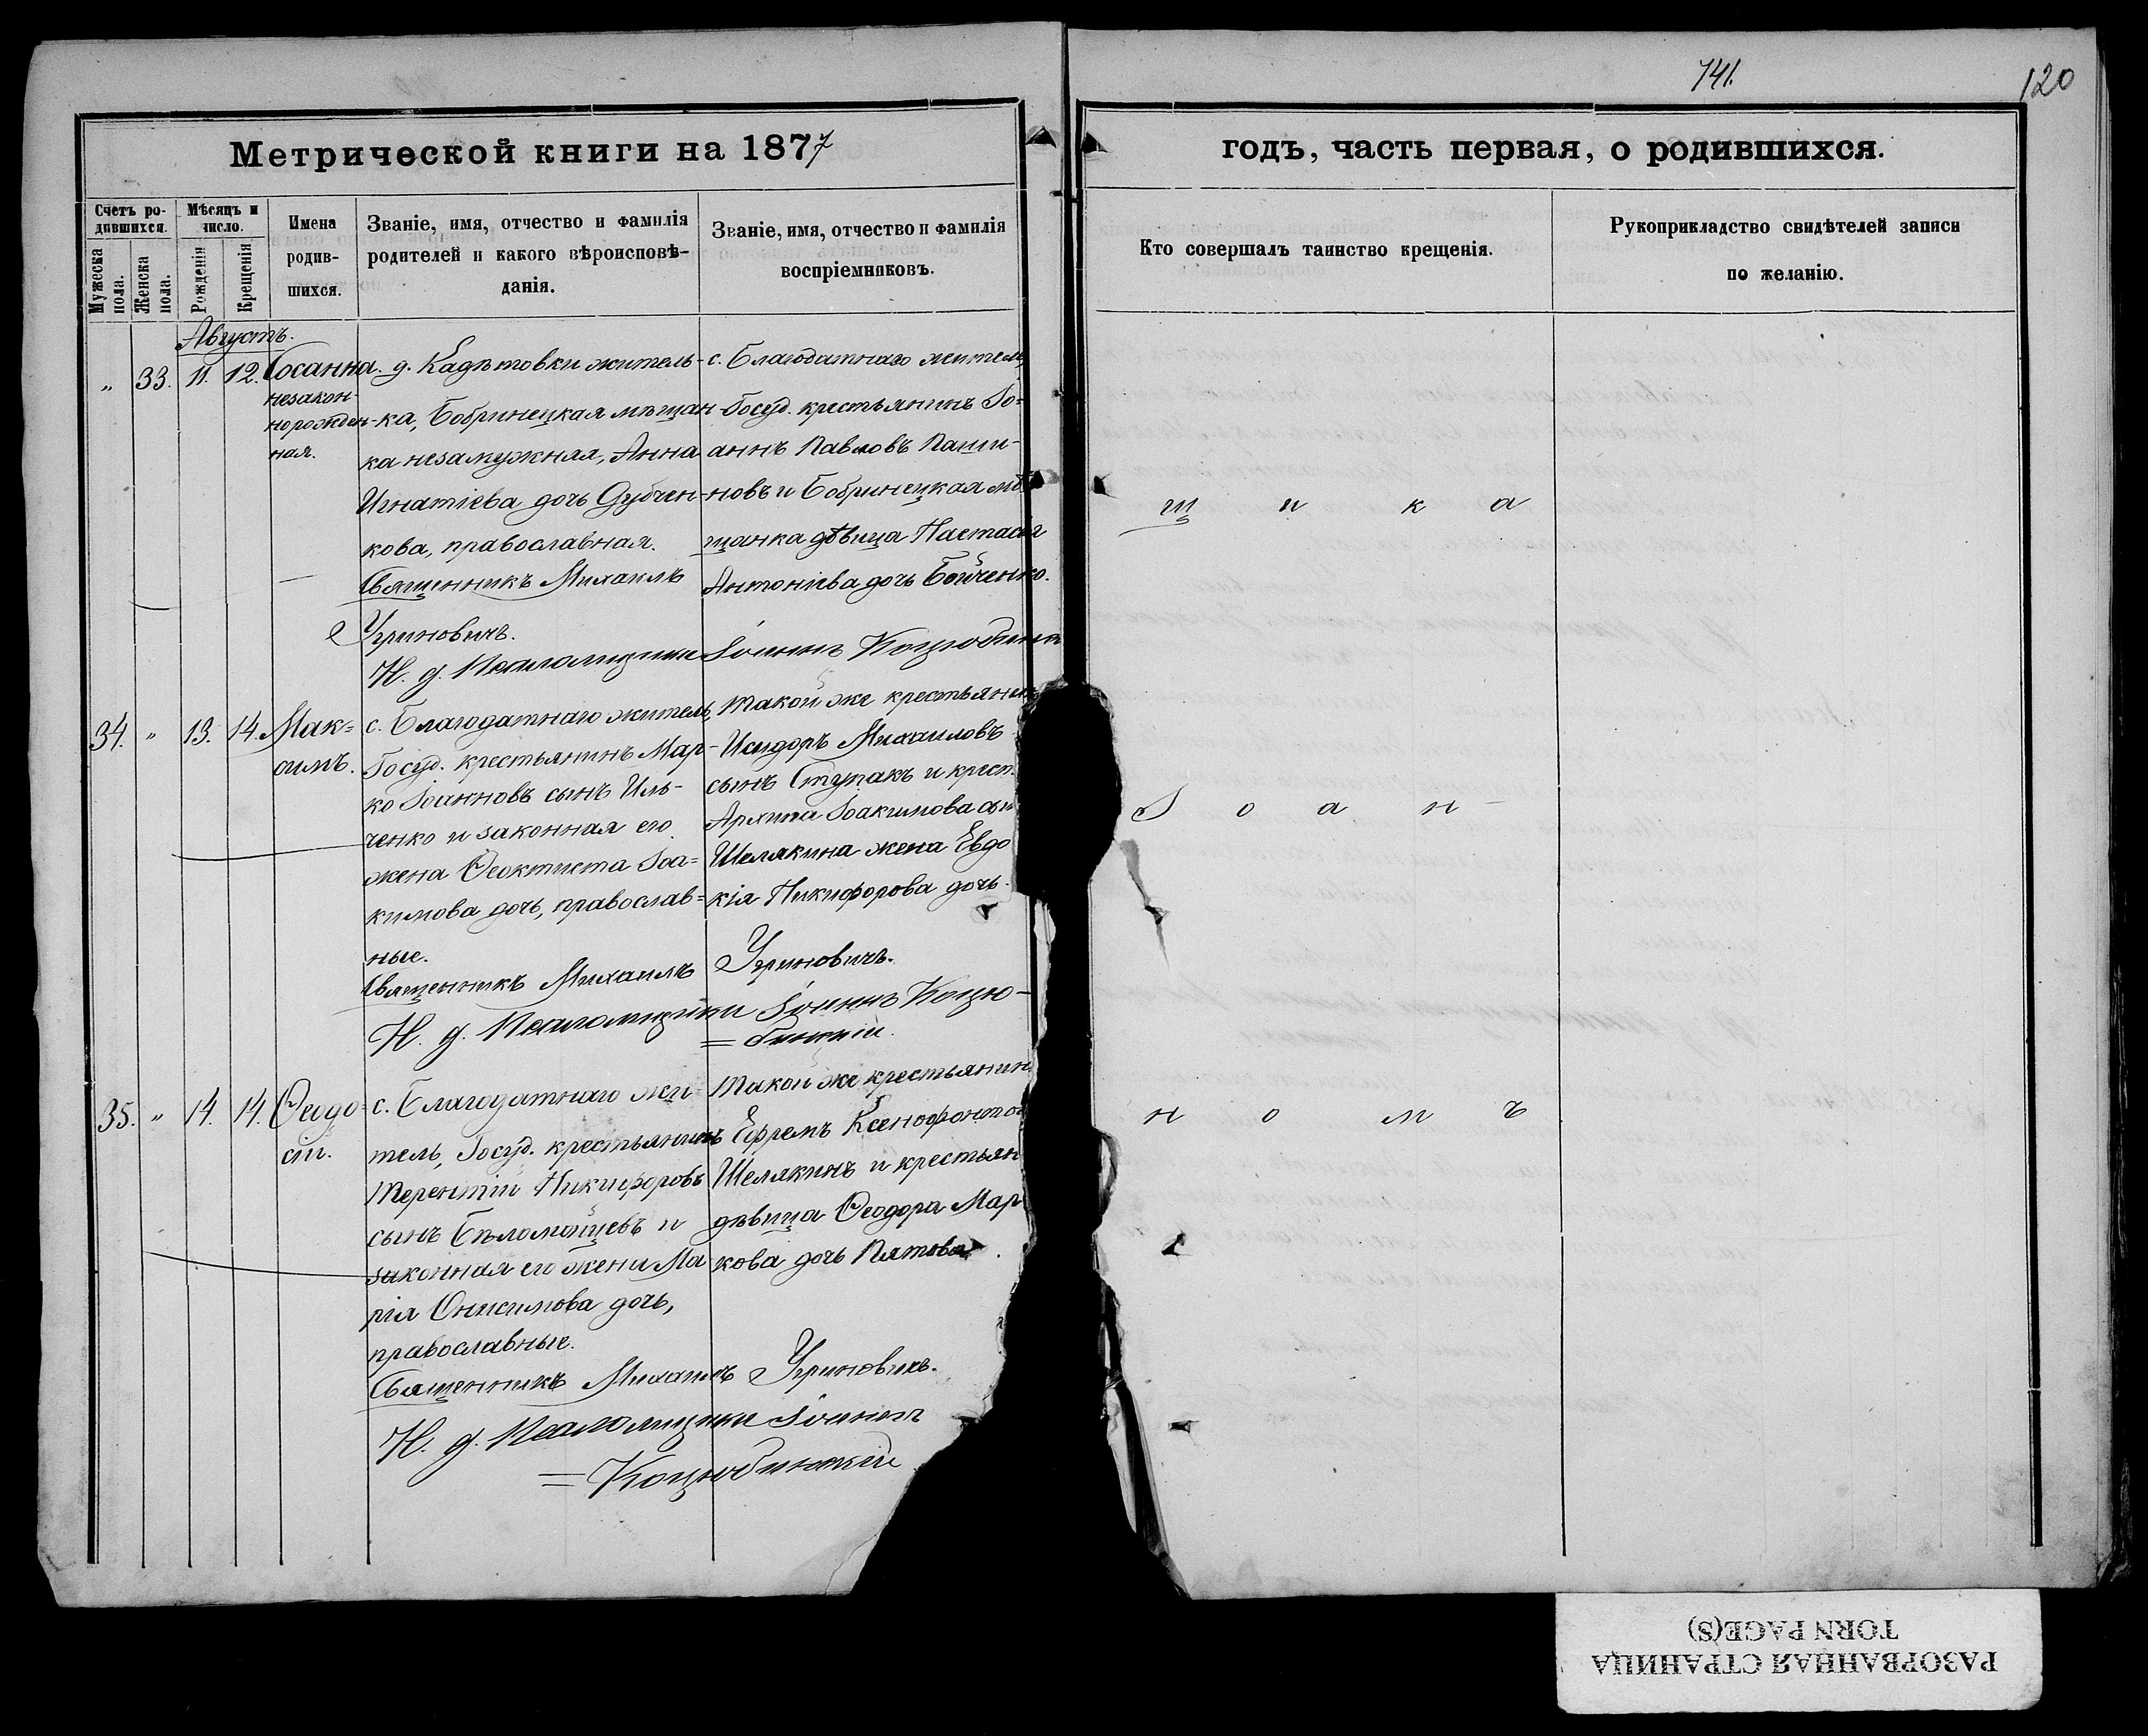 741.
120
Метрической книги на 1877
годъ, часть первая, о родившихся.
Счетъ ро-
дившихся.
Мужеска
пола.
Женска
пола.
Мѣсяцъ и
число.
Рожденія
Крещенія
Имена
родив-
шихся.
Званіе, имя, отчество и фамилія
родителей и какого вѣроисповѣ-
данія.
Званіе, имя, отчество и фамилія
воспріемниковъ.
Кто совершалъ таинство крещенія.
Рукоприкладство свидѣтелей записи
по желанію.
Августъ.
„ 33. 11. 12.
Сосанна.
незакон-
норожден-
ная.
д. Кадѣтовки житель-
ка, Бобринецкая мѣщан-
ка незамужняя, Анна
Игнатіева дочь Дубчен-
кова, православная.
Священникъ Михаилъ
Угриновичъ.
с. Благодатнаго житель,
Госуд. крестьянинъ Іо-
аннъ Павловъ Паши-
новъ и Бобринецкая мѣ
щанка дѣвица Настасія
Антоніева дочь Бойченко.
Н. д. Псаломщика Іоаннъ Коцюбинс
34. „ 13. 14.
Мак=
симъ.
с. Благодатнаго житель,
Госуд. крестьянинъ Мар-
ко Іоанновъ сынъ Иль-
ченко и законная его
жена Ѳеоктиста Іоа=
кимова дочь, православ=
ные.
такой же крестьянинъ
Исидоръ Михаиловъ
сынъ Ступакъ и крест.
Архипа Іоакимова сы
Шелякина жена Евдо
кія Никифорова дочь.
Священникъ Михаилъ Угриновичъ.
Н. д. Псаломщика Іоаннъ Коцю-
=бинскій.
35. „ 14. 14.
Ѳеодо=
сій.
с. Благодатнаго жи-
тель, Госуд. крестьянинъ
Терентій Никифоровъ
сынъ Бѣломойцевъ и
законная его жена Ма
рія Онисимова дочь,
православные.
такой же крестьянин
Ефремъ Ксенофонтов
Шелякинъ и крестьян
дѣвица Ѳеодора Мар
кова дочь Пятова.
Священникъ Михаилъ Угриновичъ.
Н. д. Псаломщика Іоаннъ
=Коцюбинскій
щ и к а
І о а н -
н о м ъ
РАЗОРВАННАЯ СТРАНИЦА
TORN PAGE(S)